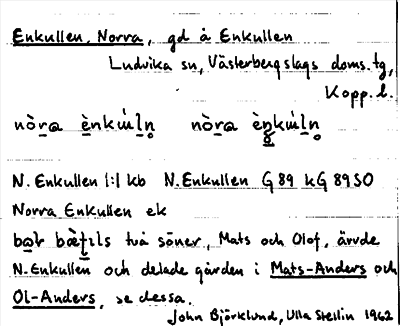 Enkullen, Norra, gd å Enkullen
Ludvika sn, Västerbergslags doms. tg,
Kopp. l.
N. Enkullen 1:1 kb N. Enkullen G 89 kG 89 SO
Norra Enkullen ek
två söner, Mats och Olof, ärvde
N. Enkullen och delade gården i Mats-Anders och
Ol-Anders, se dessa.
John Björklund, Ulla Stellin 1962